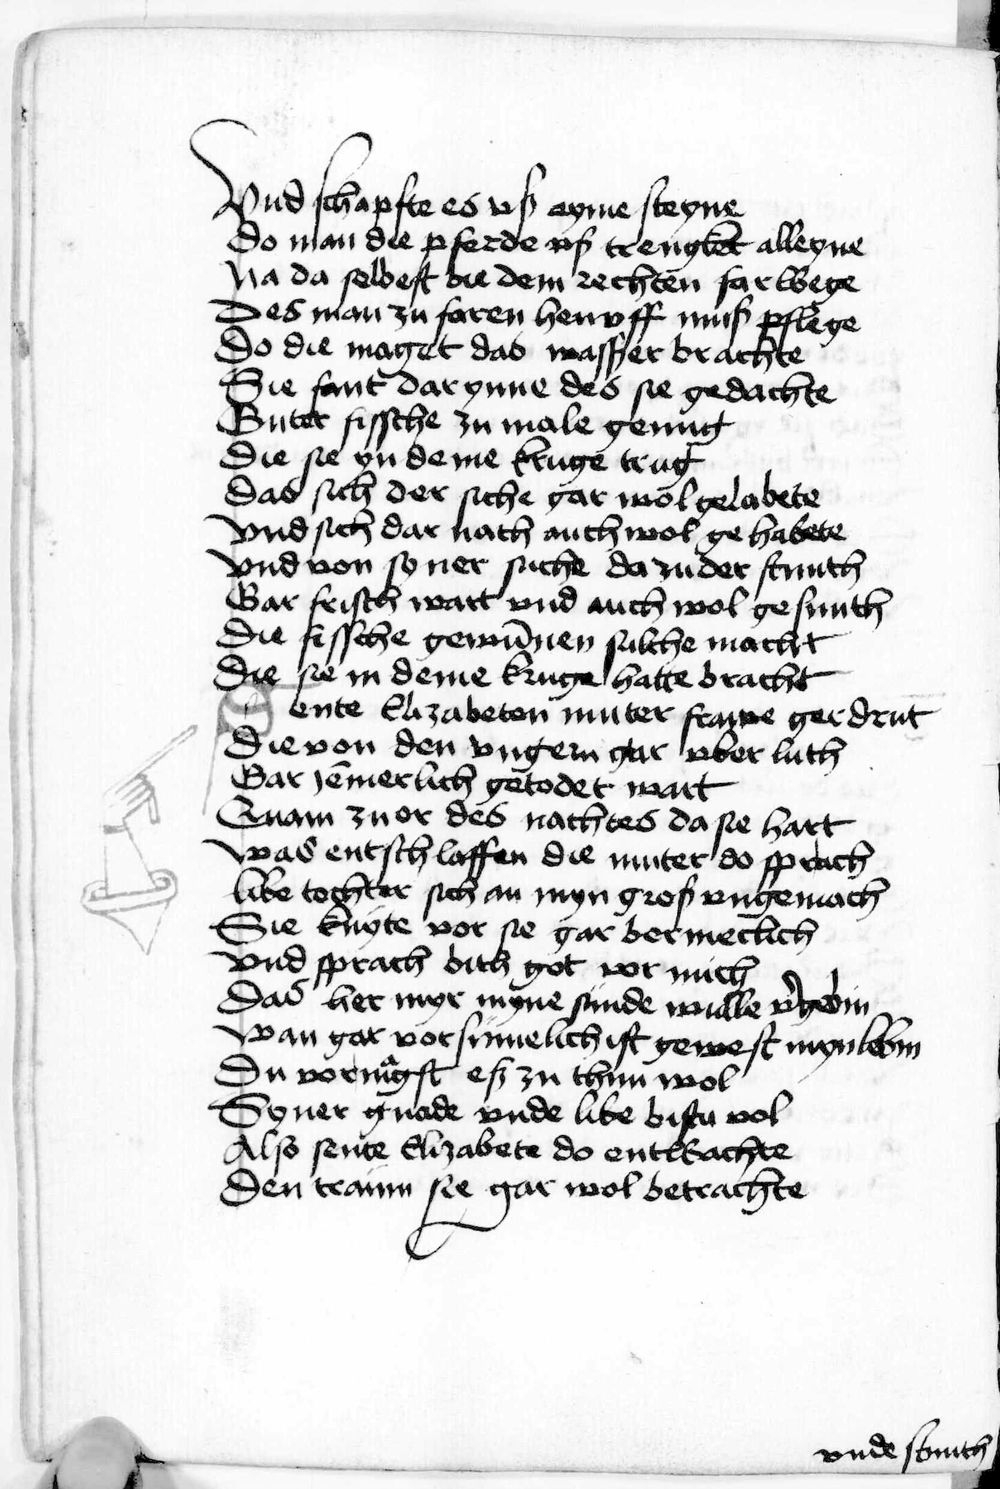 Vnd schapfte es vß eyme steyne
Do man die pferde vß trengket alleyne
Na da selbest bie dem rechten farwege
Des man zu faren henvff muß pflege
Do die maget das wasser brachte
Sie fant darynne des sie gedachte
Guter fissche zu male genug
Die sie yn deme kruge trug
Das sich der siche gar wol gelabete
Vnd sich dar nach auch wol gehabete
Vnd von syner suche da zu der stunth
Gar frisch wart vnd auch wol gesunth
Die fissche gewu̅nen sulche macht
Die sie in deme kruge hatte bracht
Sente Elizabeten muter frawe gerdrut
Die von den vngern gar vber luth
Gar je̅merlich getodet wart
Quam zu or des nachtes da sie hart
Was entschlaffen die muter do sprach
libe tochter sich an myn groß vngemach
Sie knyte vor sie gar bermeclich
Vnd sprach bith got vor mich
Das her myr myne sunde wulle v'gebin
Wan gar vorsumelich ist gewest myn lebin
Du vormagst eß zu thun wol
Syner gnade vnde libe bistu vol
Also sente Elizabete do entwachte
Den traum sie gar wol betrachte
vnde stunth